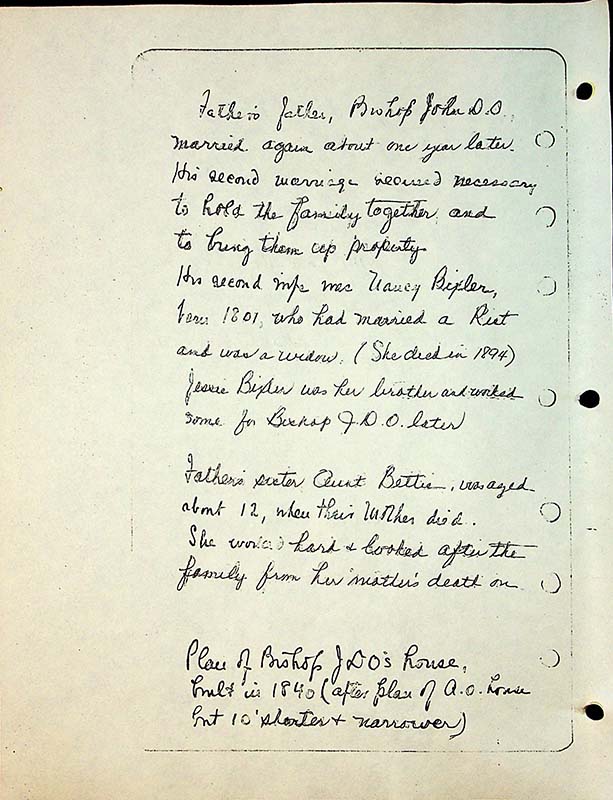 Father's father, Bishop John D.O.
married again about one year later.
His second marriage seemed necessary
to hold the family together and
to bring them up properly
His second wife was Nancy Bixler,
born 1801, who had married a Rist
and was a widow. (She died in 1894)
Jessie Bixler was her brother and worked
some for Bishop J.D.O. later
Father's sister Aunt Bettie, was aged
about 12, when their Mother died.
She worked hard & looked after the
family from her mother's death on
Plan of Bishop JDO's house,
built in 1840 (after plan of A.O. house
but 10' shorter & narrower)